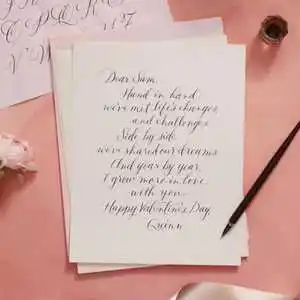 Dear Sam,
Hand in hand
we've met life's changes
and challenges
Side by side
we've shared our dreams
And year by year,
I grew more in love
with you.
Happy Valentine's Day
Quinn